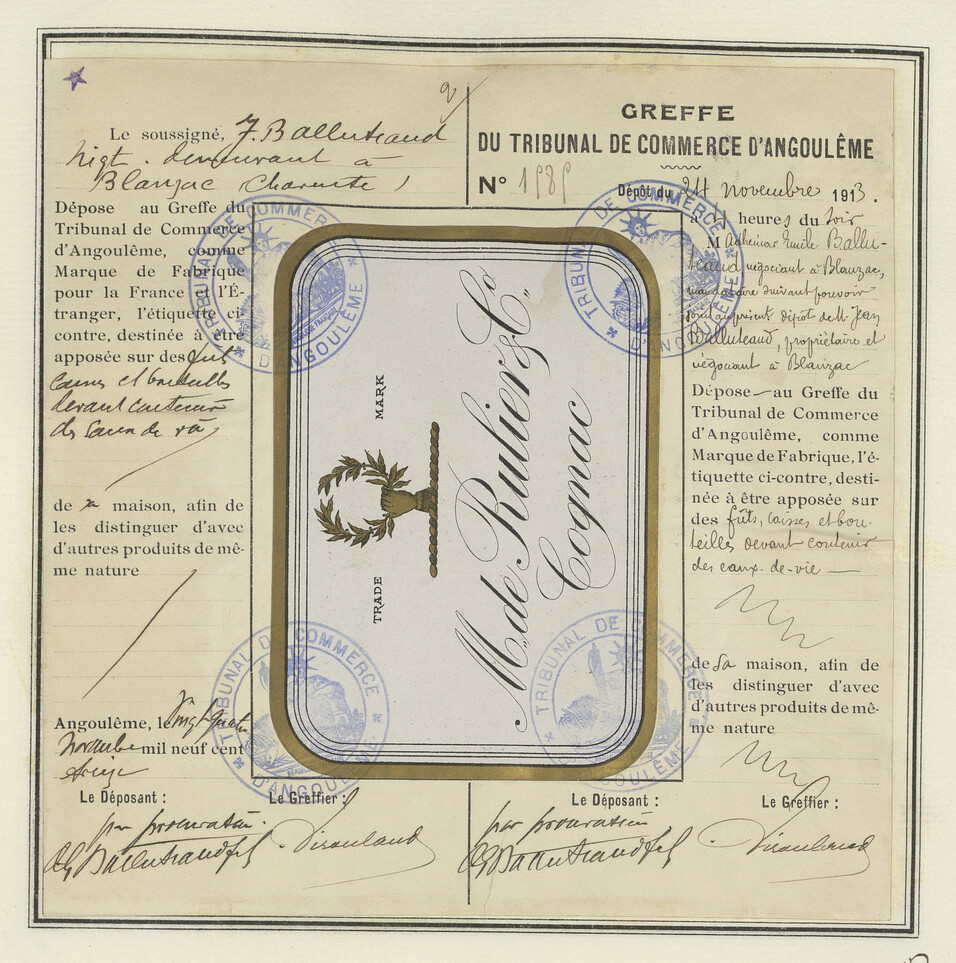 2
Le soussigné, J. Balluteaud
négt. demeurant à
Blanzac (Charente)
Dépose au Greffe du
Tribunal de Commerce
d'Angoulême, comme
Marque de Fabrique
pour la France et l'É-
tranger, l'étiquette ci-
contre, destinée à être
apposée sur des fut
caisses et bouteilles
devant contenir
des eaux de vie
de sa maison, afin de
les distinguer d'avec
d'autres produits de mê-
me nature
Angoulême, le vingt quatre
Novembre mil neuf cent
treize
Le Déposant :
Le Greffier :
par procuration
Balluteaud fils
GREFFE
DU TRIBUNAL DE COMMERCE D'ANGOULÊME
N°
Dépôt du 24 novembre 1913.
à 4 heures du soir
M Adhémar Emile Ballu-
teaud négociant à Blanzac,
mandataire suivant pouvoir
joint au présent dépôt de M. Jean
Balluteaud, propriétaire et
négociant à Blanzac
Dépose au Greffe du
Tribunal de Commerce
d'Angoulême, comme
Marque de Fabrique, l'é-
tiquette ci-contre, desti-
née à être apposée sur
des fûts, caisses et bou-
teilles devant contenir
des eaux-de-vie
de sa maison, afin de
les distinguer d'avec
d'autres produits de mê-
me nature
Le Déposant :
Le Greffier :
par procuration
Balluteaud fils
TRADE MARK
"M. de Rulier & Co"
Cognac
TRIBUNAL DE COMMERCE D'ANGOULÊME
TRIBUNAL DE COMMERCE D'ANGOULÊME
TRIBUNAL DE COMMERCE D'ANGOULÊME
TRIBUNAL DE COMMERCE D'ANGOULÊME